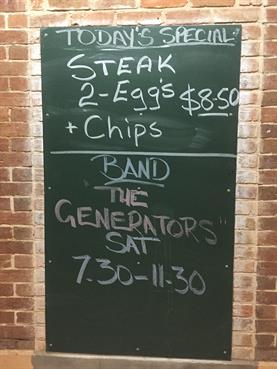 TODAY'S SPECIAL
STEAK
2-Egg's $8.50
+ Chips
BAND
THE
GENERATORS"
SAT
7.30-11.30